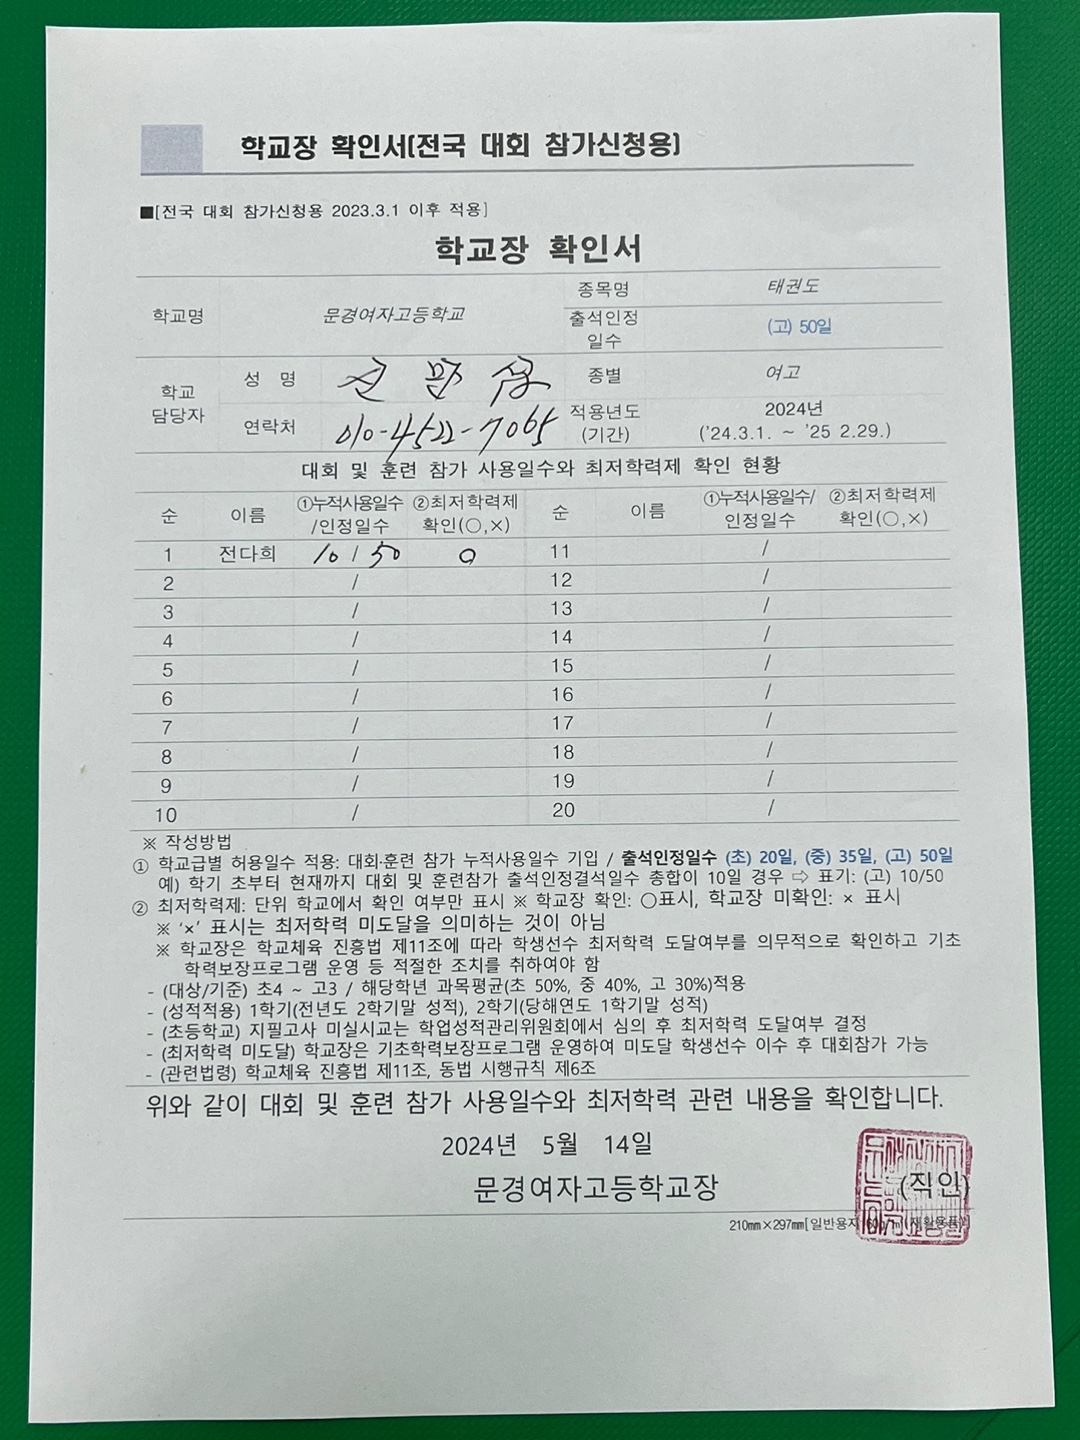 학교장 확인서(전국 대회 참가신청용)
■[전국 대회 참가신청용 2023.3.1 이후 적용]
학교장 확인서
학교명 문경여자고등학교 종목명 태권도
출석인정 일수 (고) 50일
학교 담당자 성 명 종별 여고
연락처 010-4522-7065 적용년도 (기간) 2024년 ('24.3.1. ~ '25 2.29.)
대회 및 훈련 참가 사용일수와 최저학력제 확인 현황
순 이름 ①누적사용일수/인정일수 ②최저학력제 확인(○,×) 순 이름 ①누적사용일수/인정일수 ②최저학력제 확인(○,×)
1 전다희 10 / 50 ○ 11 /
2 / 12 /
3 / 13 /
4 / 14 /
5 / 15 /
6 / 16 /
7 / 17 /
8 / 18 /
9 / 19 /
10 / 20 /
※ 작성방법
① 학교급별 허용일수 적용: 대회·훈련 참가 누적사용일수 기입 / 출석인정일수 (초) 20일, (중) 35일, (고) 50일
예) 학기 초부터 현재까지 대회 및 훈련참가 출석인정결석일수 총합이 10일 경우 ⇨ 표기: (고) 10/50
② 최저학력제: 단위 학교에서 확인 여부만 표시 ※ 학교장 확인: ○표시, 학교장 미확인: × 표시
※ '×' 표시는 최저학력 미도달을 의미하는 것이 아님
※ 학교장은 학교체육 진흥법 제11조에 따라 학생선수 최저학력 도달여부를 의무적으로 확인하고 기초
학력보장프로그램 운영 등 적절한 조치를 취하여야 함
- (대상/기준) 초4 ~ 고3 / 해당학년 과목평균(초 50%, 중 40%, 고 30%)적용
- (성적적용) 1학기(전년도 2학기말 성적), 2학기(당해연도 1학기말 성적)
- (초등학교) 지필고사 미실시교는 학업성적관리위원회에서 심의 후 최저학력 도달여부 결정
- (최저학력 미도달) 학교장은 기초학력보장프로그램 운영하여 미도달 학생선수 이수 후 대회참가 가능
- (관련법령) 학교체육 진흥법 제11조, 동법 시행규칙 제6조
위와 같이 대회 및 훈련 참가 사용일수와 최저학력 관련 내용을 확인합니다.
2024년 5월 14일
문경여자고등학교장 (직인)
210㎜×297㎜[일반용지